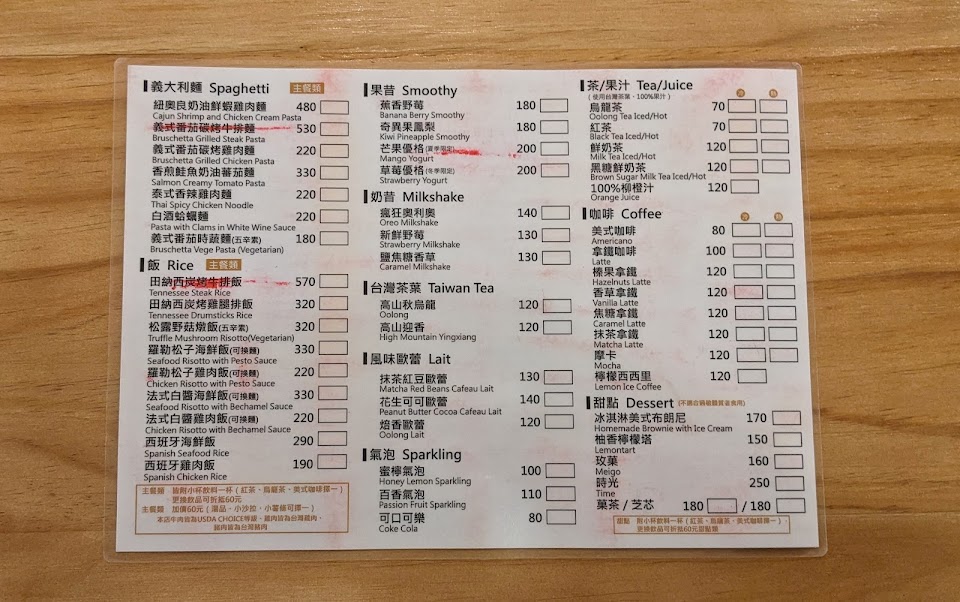 義大利麵 Spaghetti 主餐類
紐奧良奶油鮮蝦雞肉麵 480
Cajun Shrimp and Chicken Cream Pasta
義式番茄碳烤牛排麵 530
Bruschetta Grilled Steak Pasta
義式番茄碳烤雞肉麵 220
Bruschetta Grilled Chicken Pasta
香煎鮭魚奶油蕃茄麵 330
Salmon Creamy Tomato Pasta
泰式香辣雞肉麵 220
Thai Spicy Chicken Noodle
白酒蛤蠣麵 220
Pasta with Clams in White Wine Sauce
義式番茄時蔬麵(五辛素) 180
Bruschetta Vege Pasta (Vegetarian)
飯 Rice 主餐類
田納西炭烤牛排飯 570
Tennessee Steak Rice
田納西炭烤雞腿排飯 320
Tennessee Drumsticks Rice
松露野菇燉飯(五辛素) 320
Truffle Mushroom Risotto(Vegetarian)
羅勒松子海鮮飯(可換麵) 330
Seafood Risotto with Pesto Sauce
羅勒松子雞肉飯(可換麵) 220
Chicken Risotto with Pesto Sauce
法式白醬海鮮飯(可換麵) 330
Seafood Risotto with Bechamel Sauce
法式白醬雞肉飯(可換麵) 220
Chicken Risotto with Bechamel Sauce
西班牙海鮮飯 290
Spanish Seafood Rice
西班牙雞肉飯 190
Spanish Chicken Rice
主餐類 皆附小杯飲料一杯 (紅茶、烏龍茶、美式咖啡擇一)
更換飲品可折抵60元
主餐類 加價60元 (湯品、小沙拉、小薯條可擇一)
本店牛肉皆為USDA CHOICE等級、雞肉皆為台灣雞肉、
豬肉皆為台灣豬肉
果昔 Smoothy
蕉香野莓 180
Banana Berry Smoothy
奇異果鳳梨 180
Kiwi Pineapple Smoothy
芒果優格(夏季限定) 200
Mango Yogurt
草莓優格(冬季限定) 200
Strawberry Yogurt
奶昔 Milkshake
瘋狂奧利奧 140
Oreo Milkshake
新鮮野莓 130
Strawberry Milkshake
鹽焦糖香草 130
Caramel Milkshake
台灣茶葉 Taiwan Tea
高山秋烏龍 120
Oolong
高山迎香 120
High Mountain Yingxiang
風味歐蕾 Lait
抹茶紅豆歐蕾 130
Matcha Red Beans Cafeau Lait
花生可可歐蕾 140
Peanut Butter Cocoa Cafeau Lait
焙香歐蕾 120
Oolong Lait
氣泡 Sparkling
蜜檸氣泡 100
Honey Lemon Sparkling
百香氣泡 110
Passion Fruit Sparkling
可口可樂 80
Coke Cola
茶/果汁 Tea/Juice
(使用台灣茶葉、100%果汁) 冷 熱
烏龍茶 70
Oolong Tea Iced/Hot
紅茶 70
Black Tea Iced/Hot
鮮奶茶 120
Milk Tea Iced/Hot
黑糖鮮奶茶 120
Brown Sugar Milk Tea Iced/Hot
100%柳橙汁 120
Orange Juice
咖啡 Coffee 冷 熱
美式咖啡 80
Americano
拿鐵咖啡 100
Latte
榛果拿鐵 120
Hazelnuts Latte
香草拿鐵 120
Vanilla Latte
焦糖拿鐵 120
Caramel Latte
抹茶拿鐵 120
Matcha Latte
摩卡 120
Mocha
檸檬西西里 120
Lemon Ice Coffee
甜點 Dessert
冰淇淋美式布朗尼 170
Homemade Brownie with Ice Cream
柚香檸檬塔 150
Lemontart
玫菓 160
Meigo
時光 250
Time
菓茶 / 芝芯 180 / 180
甜點 附小杯飲料一杯 (紅茶、烏龍茶、美式咖啡擇一)，
更換飲品可折抵60元甜點類